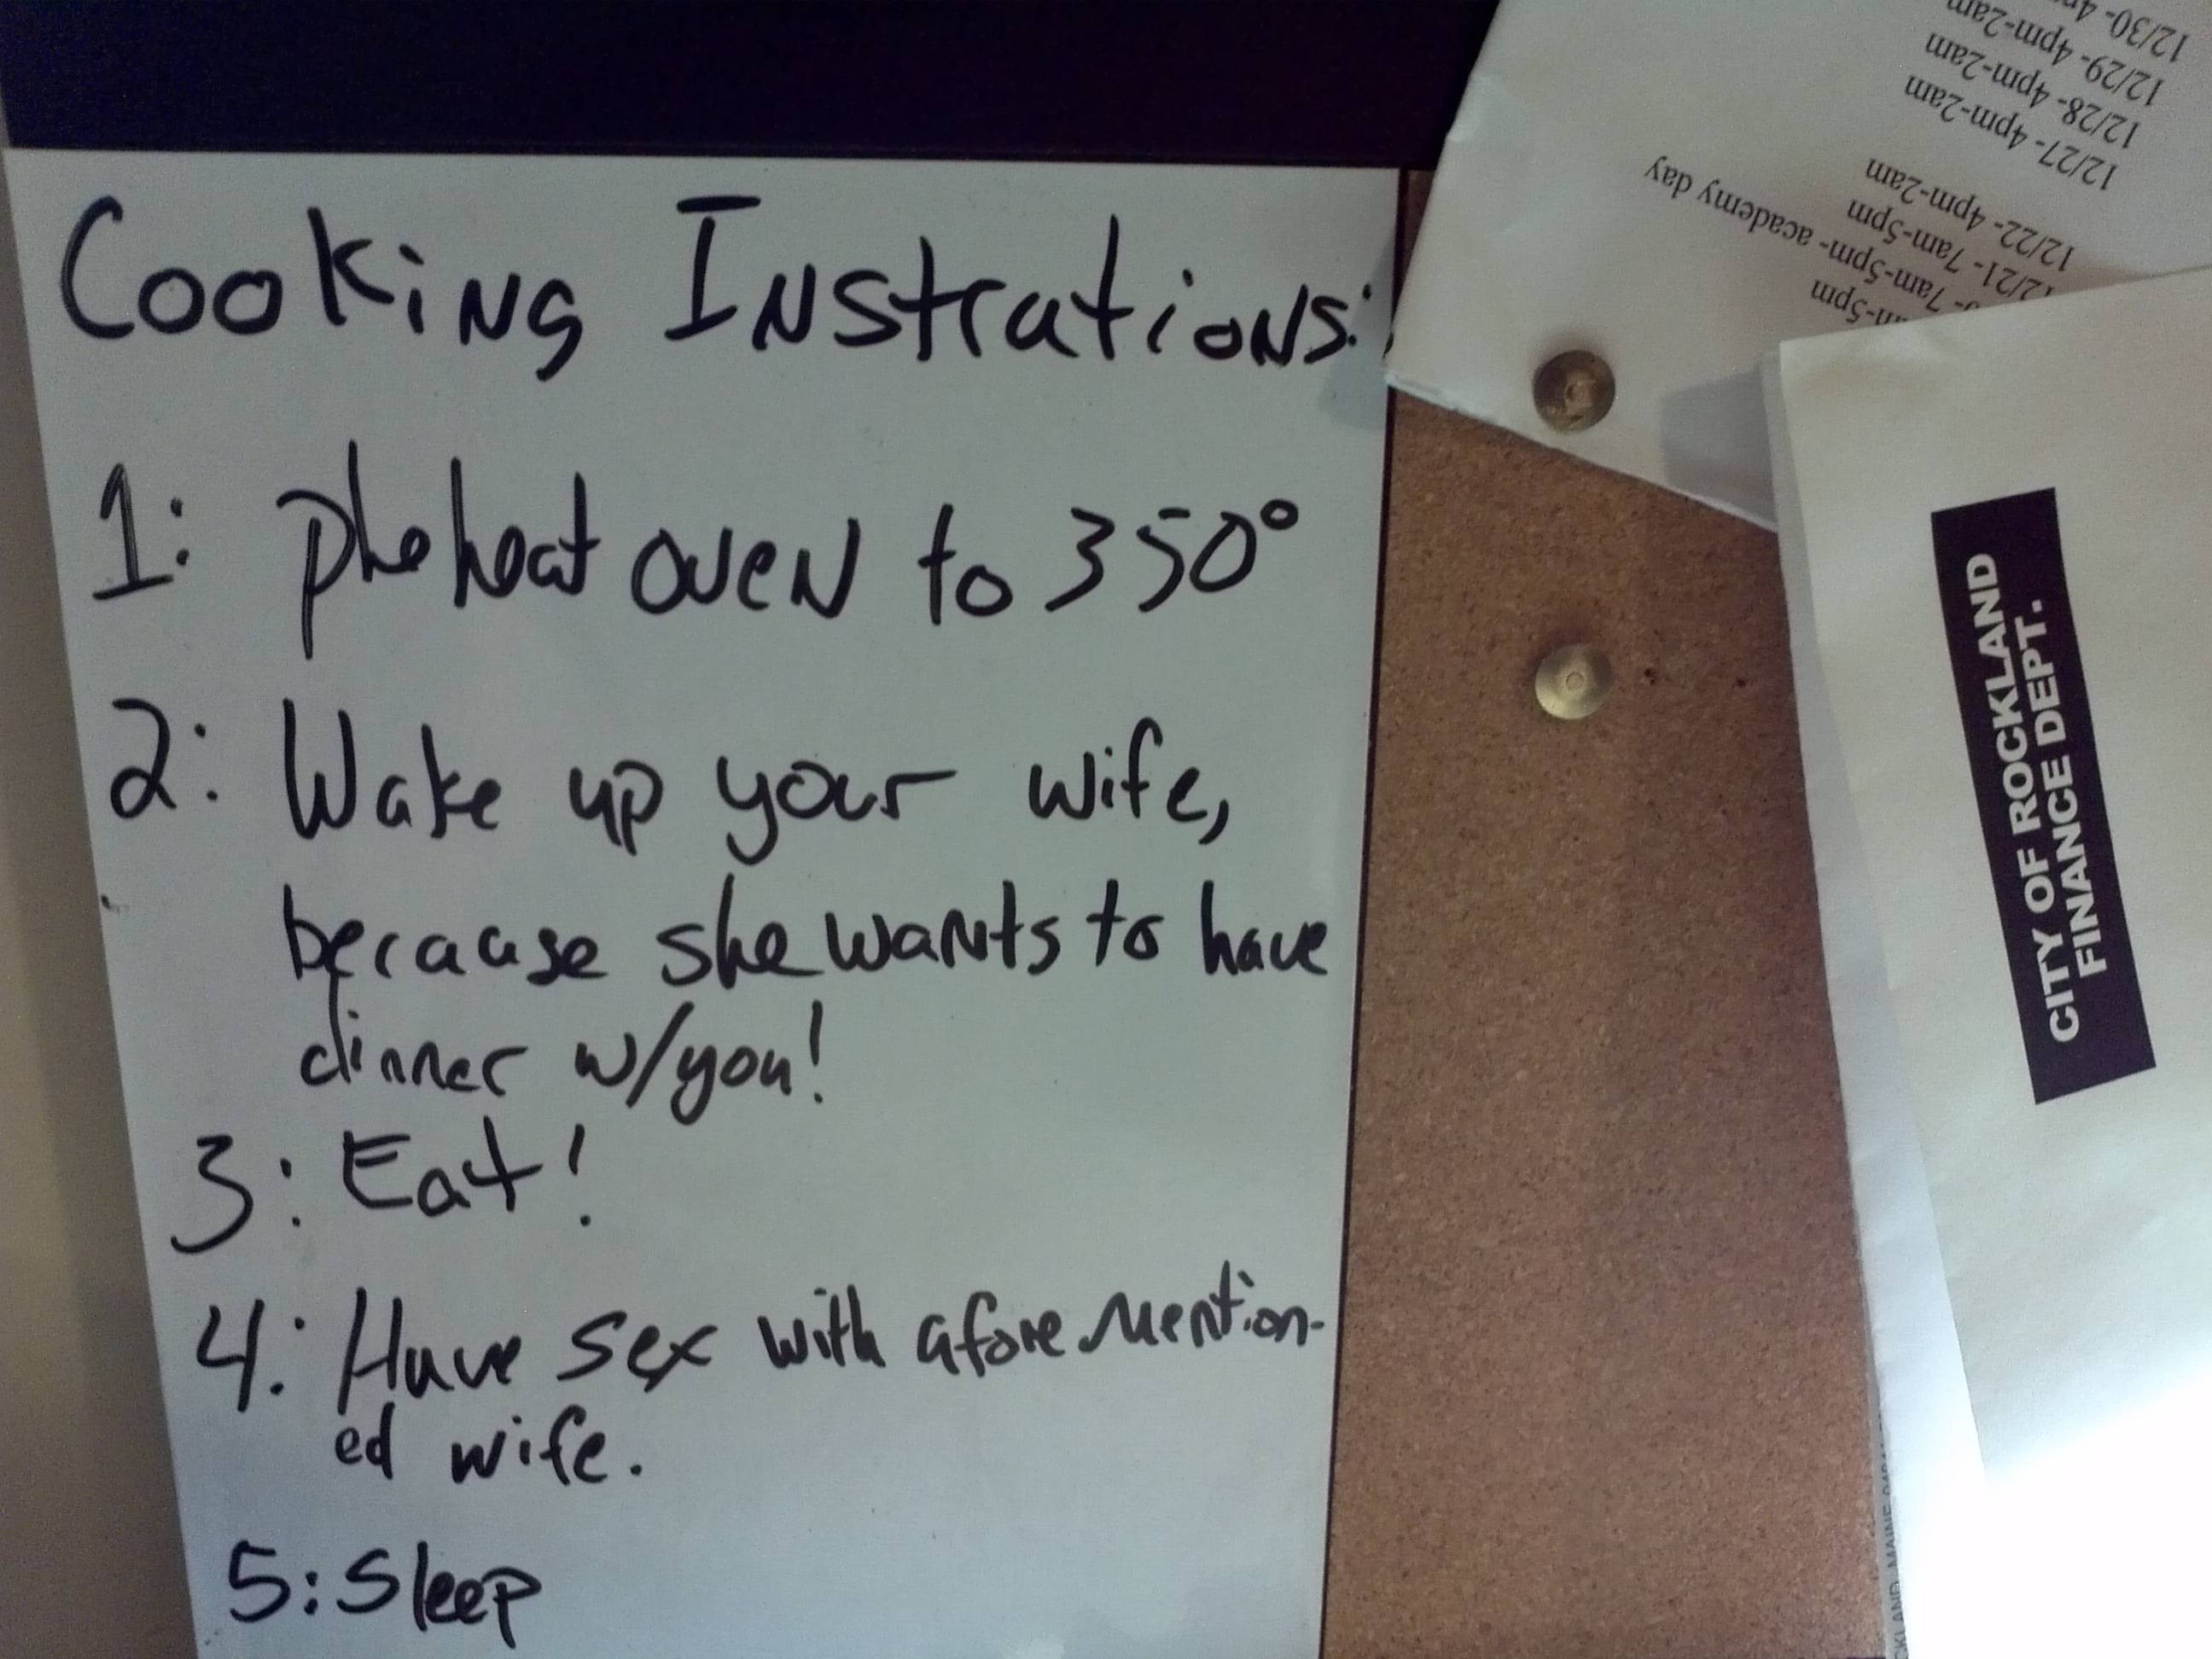 Cooking Instrations:
1: preheat oven to 350°
2: Wake up your wife,
because she wants to have
dinner w/you!
3: Eat!
4: Have sex with aforemention-
ed wife.
5: Sleep
12/21- 7am-5pm
7am-5pm- academy day
12/22- 4pm-2am
12/27- 4pm-2am
12/28- 4pm-2am
12/29- 4pm-2am
12/30- 4pm
CITY OF ROCKLAND
FINANCE DEPT.